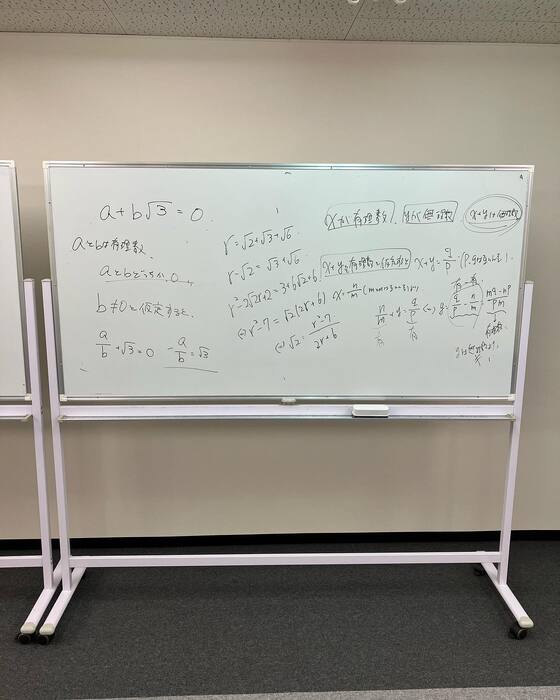 a+b√3=0
aとbは有理数.
aとbどっちも0.
b≠0と仮定すると、
a/b+√3=0  -a/b=√3
r=√2+√3+√6
r-√2=√3+√6
r²-2√2r+2=3+6√2+6
⇔r²-7=√2(2r+6)
⇔√2=r²-7/2r+6
xが有理数. yが無理数 x+yは無理数
x+yを有理数と仮定すると x+y=q/p
x=n/m
n/m+y=q/p ⇔ y=q/p-n/m=mq-np/pm
有 有
有-有
有理数